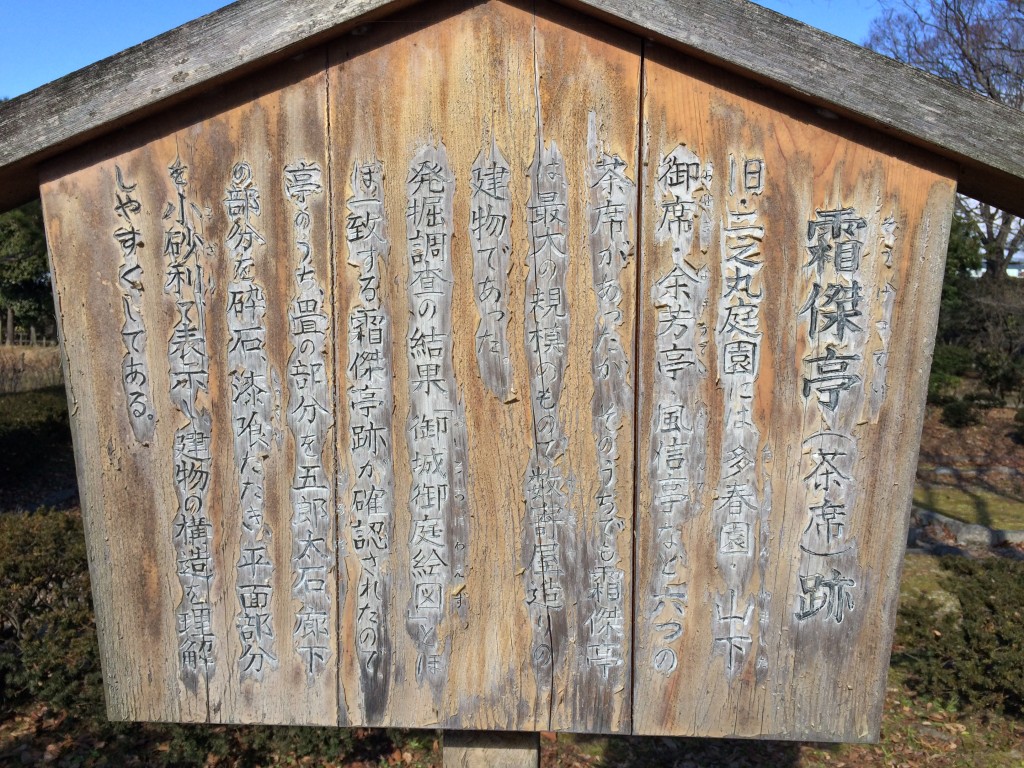 霜傑亭(茶席)跡
旧・二之丸庭園には多春園・山下
御席・余芳亭・風信亭など六つの
茶席があったが、そのうちでも霜傑亭
は最大の規模のもので数寄屋造りの
建物であった
発掘調査の結果「御城御庭絵図」とほ
ぼ一致する霜傑亭跡が確認されたので
亭のうち畳の部分を五郎太石、廊下
の部分を砕石、漆喰たたき、平面部分
を小砂利で表示し建物の構造を理解
しやすくしてある。